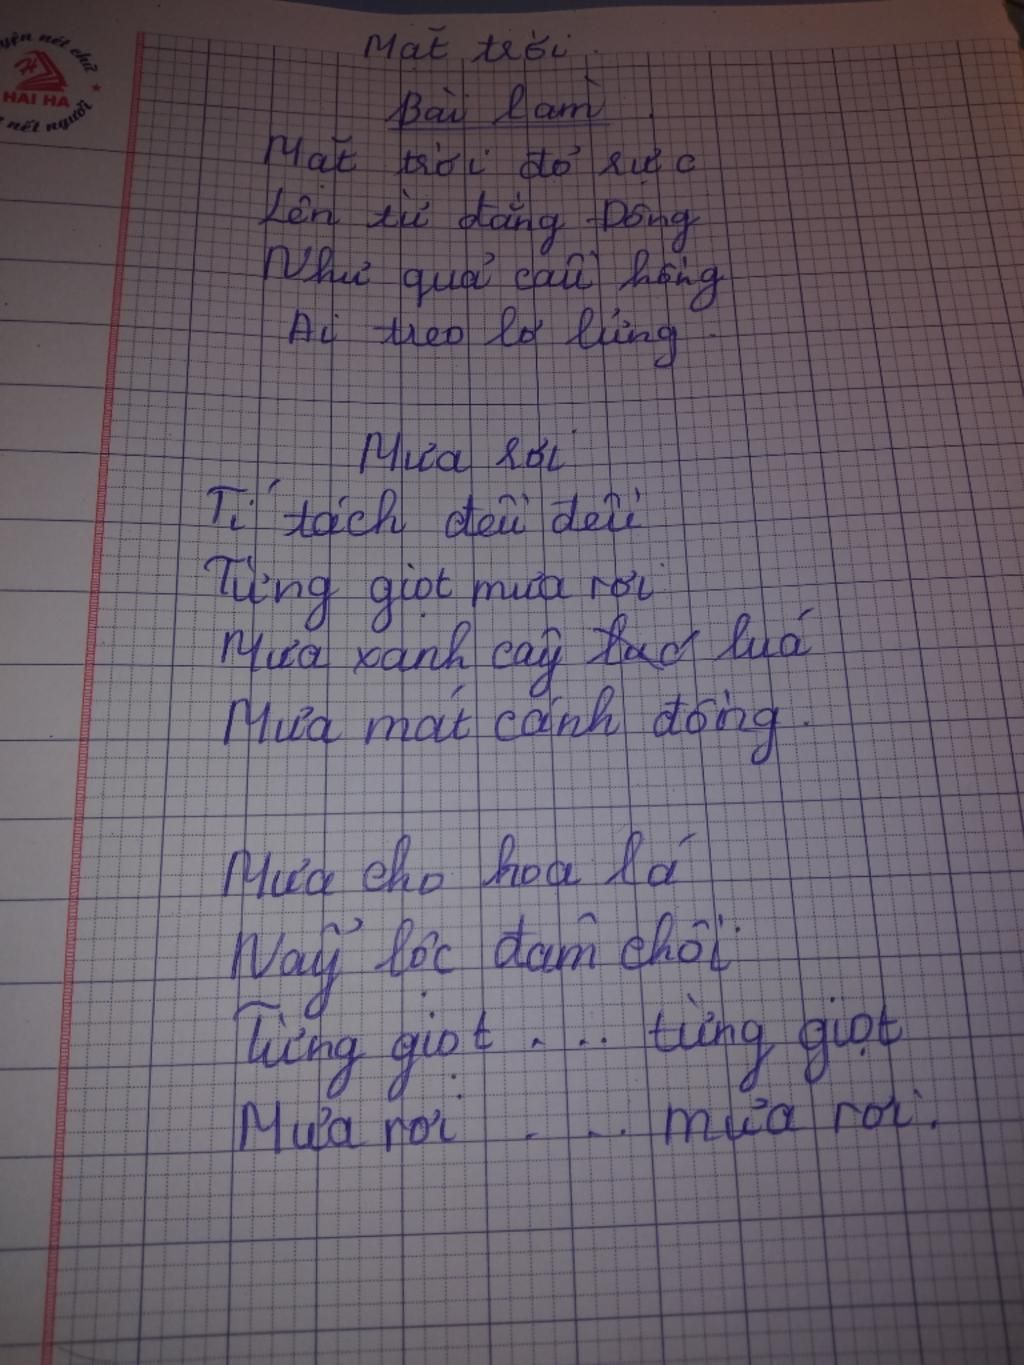 Mặt trời.
uyện nét chữ
HAI HA
nết người
Bài làm
Mặt trời đỏ rực
Lên từ đằng Đông
Như quả cầu hồng
Ai treo lơ lửng.
Mưa rơi
Tí tách đều đều
Từng giọt mưa rơi
Mưa xanh cây luá
Mưa mát cánh đồng.
Mưa cho hoa lá
Nảy lộc đâm chồi
Từng giọt ... từng giọt
Mưa rơi ... mưa rơi.